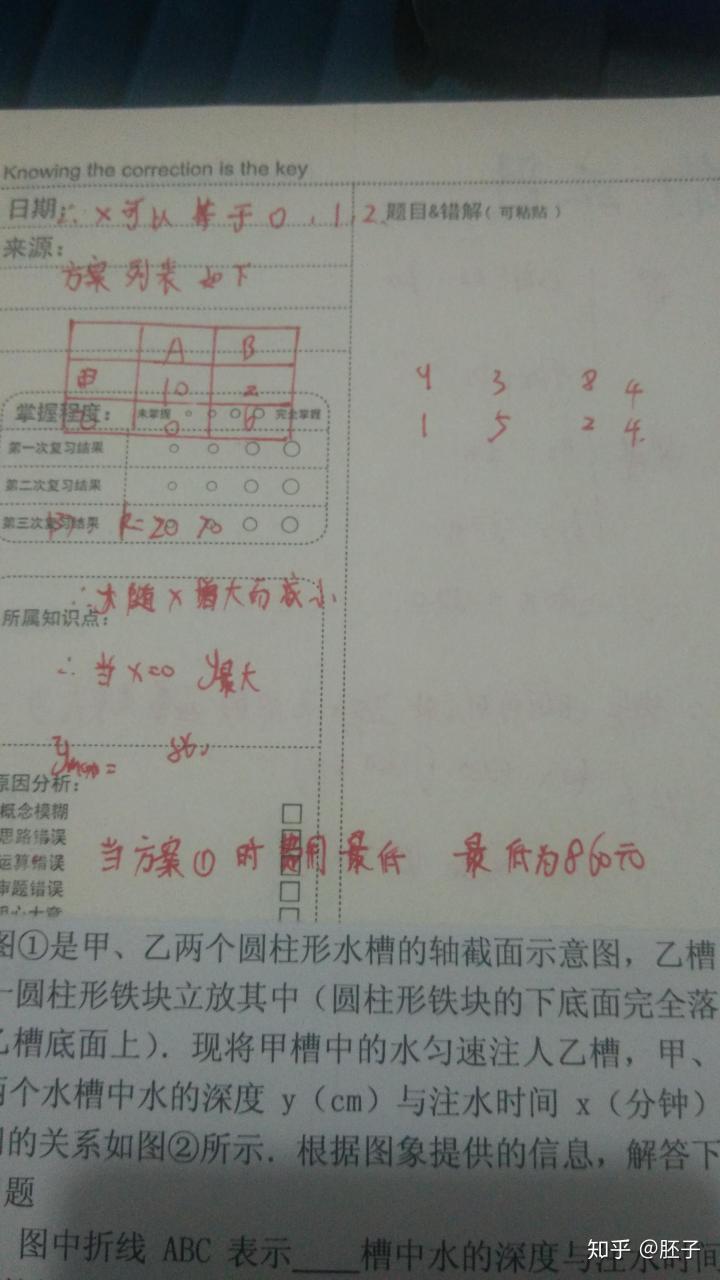 Knowing the correction is the key
日期:
∴ x可以等于0,1,2
题目&错解(可粘贴)
来源:
方案列表如下
A B
甲 10 2
0 6
4 3 8 4
1 5 2 4.
掌握程度: 未掌握 完全掌握
第一次复习结果
第二次复习结果
第三次复习结果
k=20 >0
随x增大而减小
所属知识点:
∴当x=0 y最大
原因分析:
概念模糊
思路错误
运算错误
审题错误
粗心大意
当方案①时费用最低 最低为860元
图①是甲、乙两个圆柱形水槽的轴截面示意图，乙槽
一圆柱形铁块立放其中（圆柱形铁块的下底面完全落
乙槽底面上）．现将甲槽中的水匀速注人乙槽，甲、
两个水槽中水的深度 y（cm）与注水时间 x（分钟）
间的关系如图②所示．根据图象提供的信息，解答下
题
图中折线 ABC 表示____槽中水的深度与注水时间
知乎 @胚子